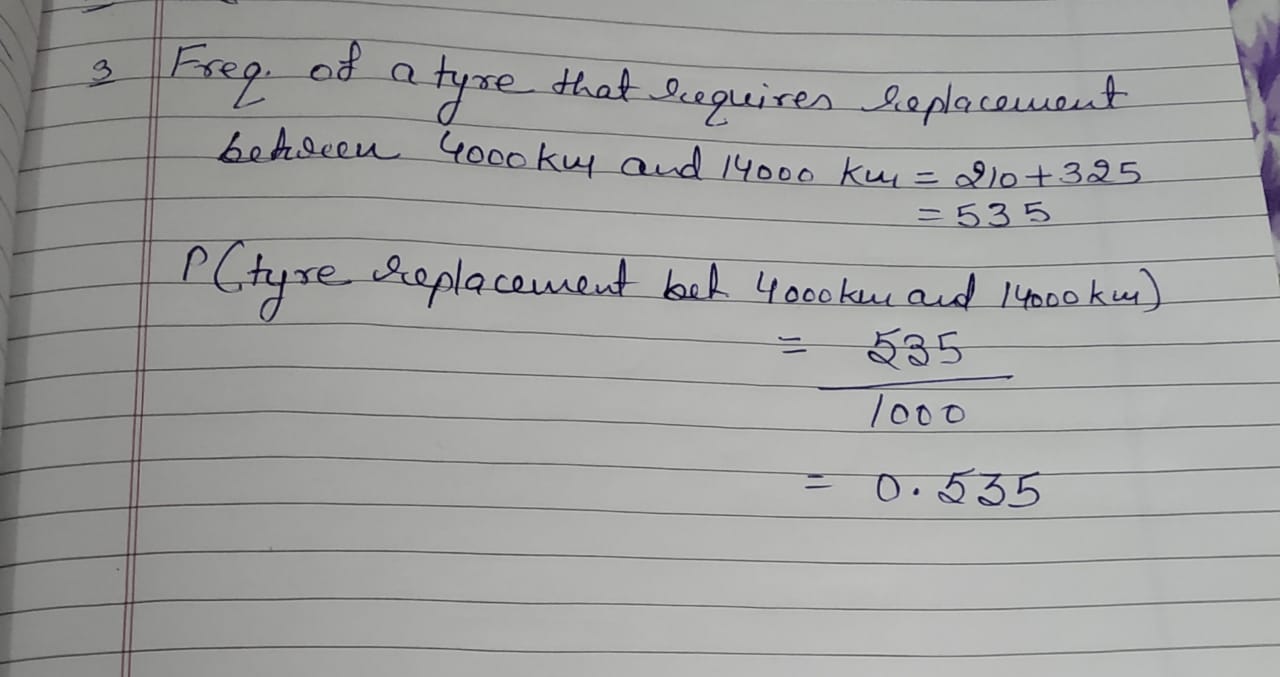 3 Freq. of a tyre that requires replacement
between 4000 km and 14000 km = 210 + 325
= 535
P(tyre replacement bet 4000 km and 14000 km)
= 535
1000
= 0.535